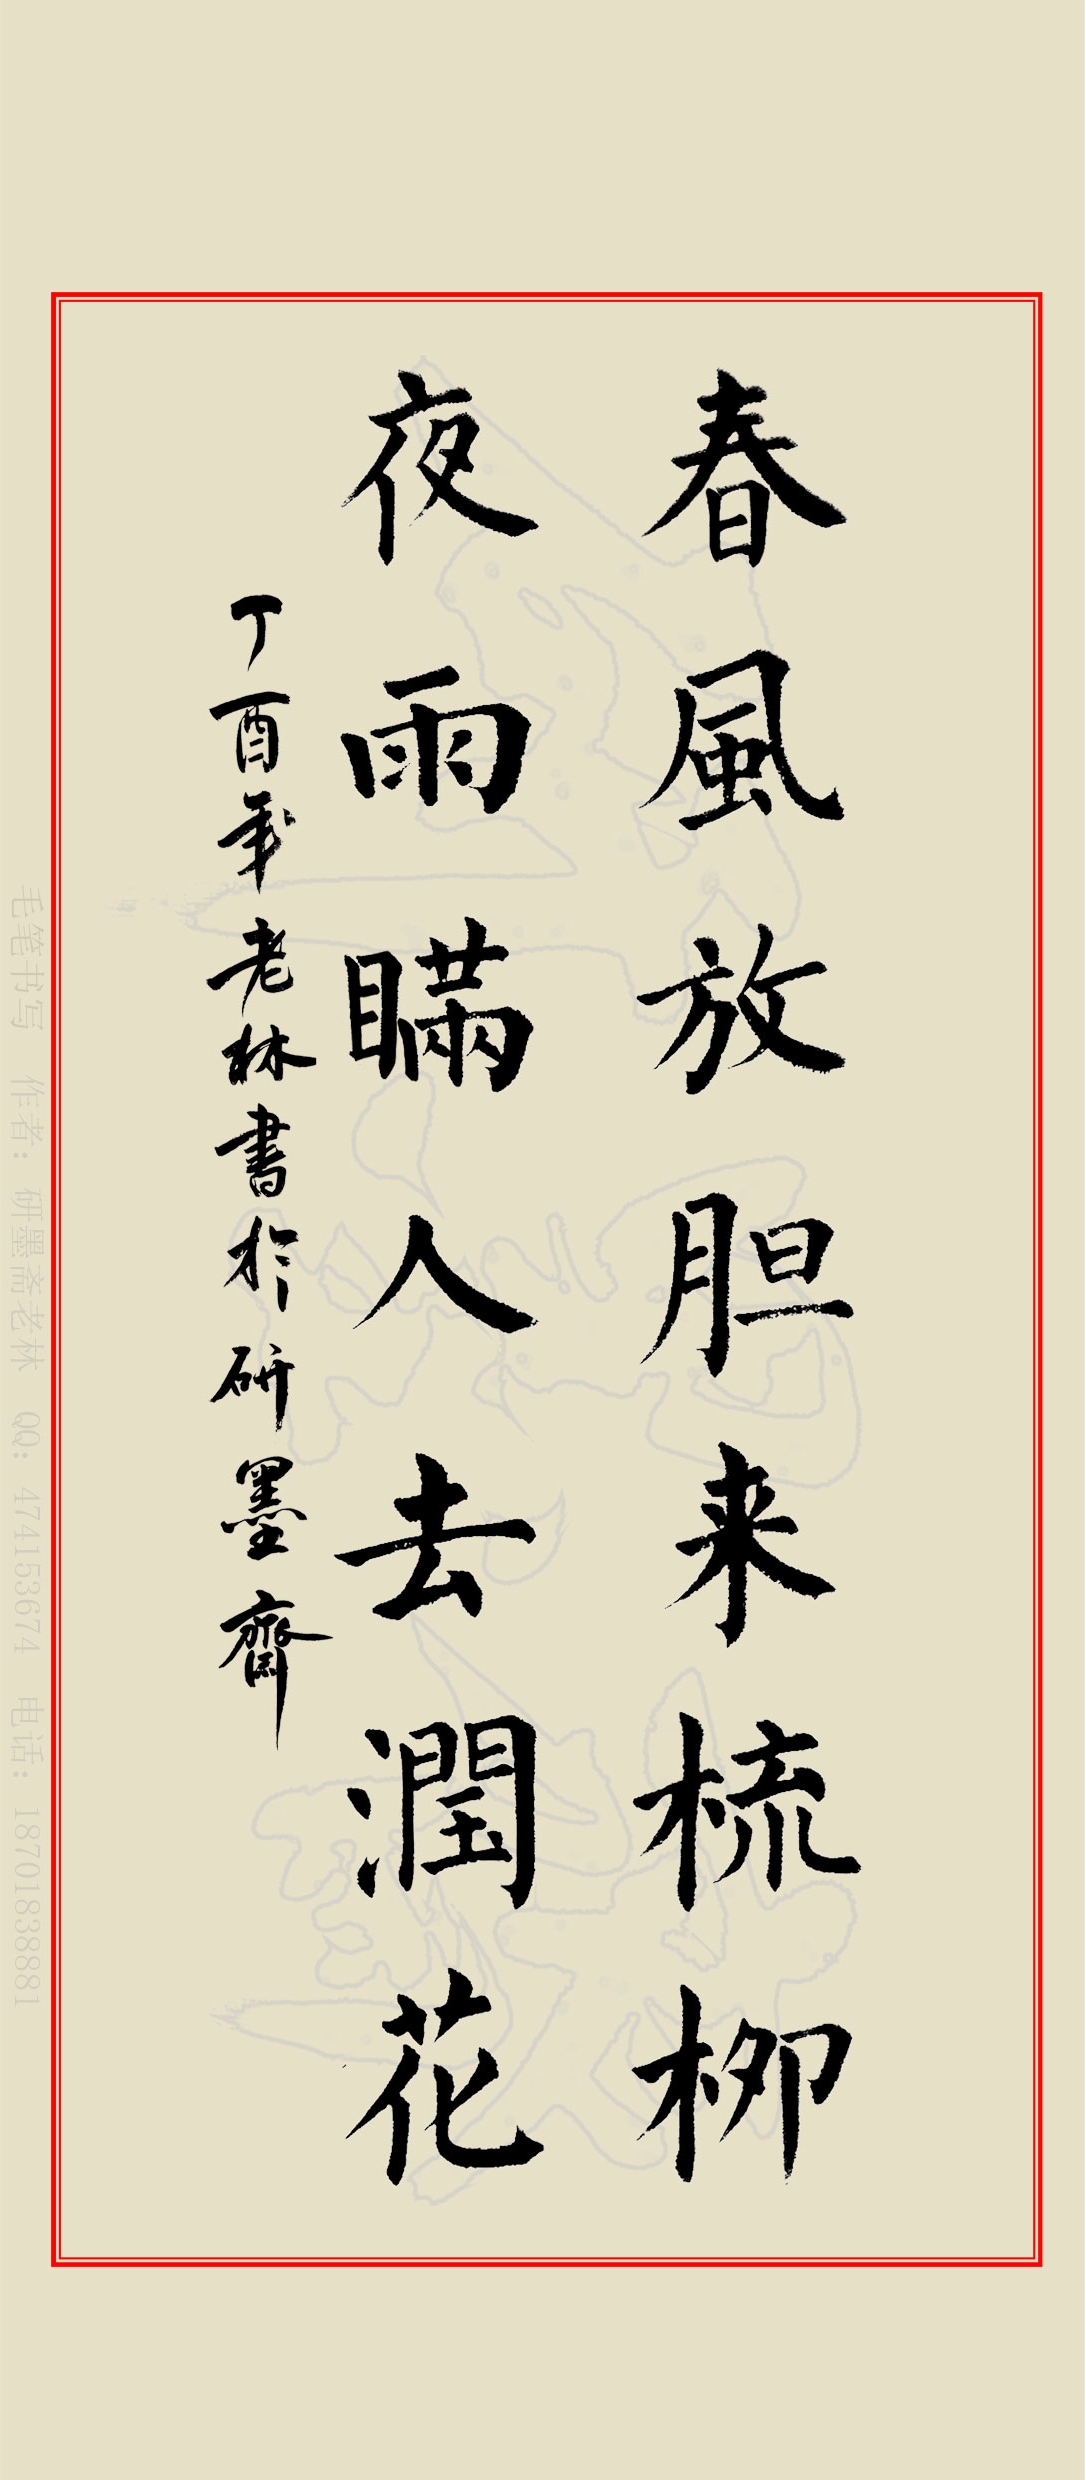 春風放胆来梳柳
夜雨瞞人去潤花
丁酉年老林書於研墨齋
毛笔书写 作者：研墨斋老林 QQ：474153674 电话：18701838881